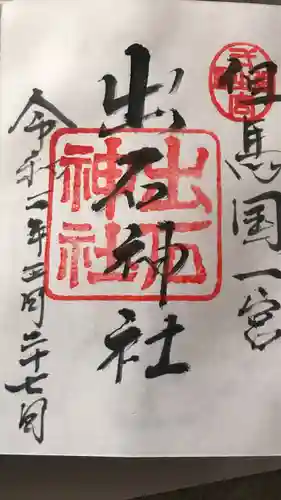 但馬国一宮
出石神社
出石神社
令和二年四月二十七日